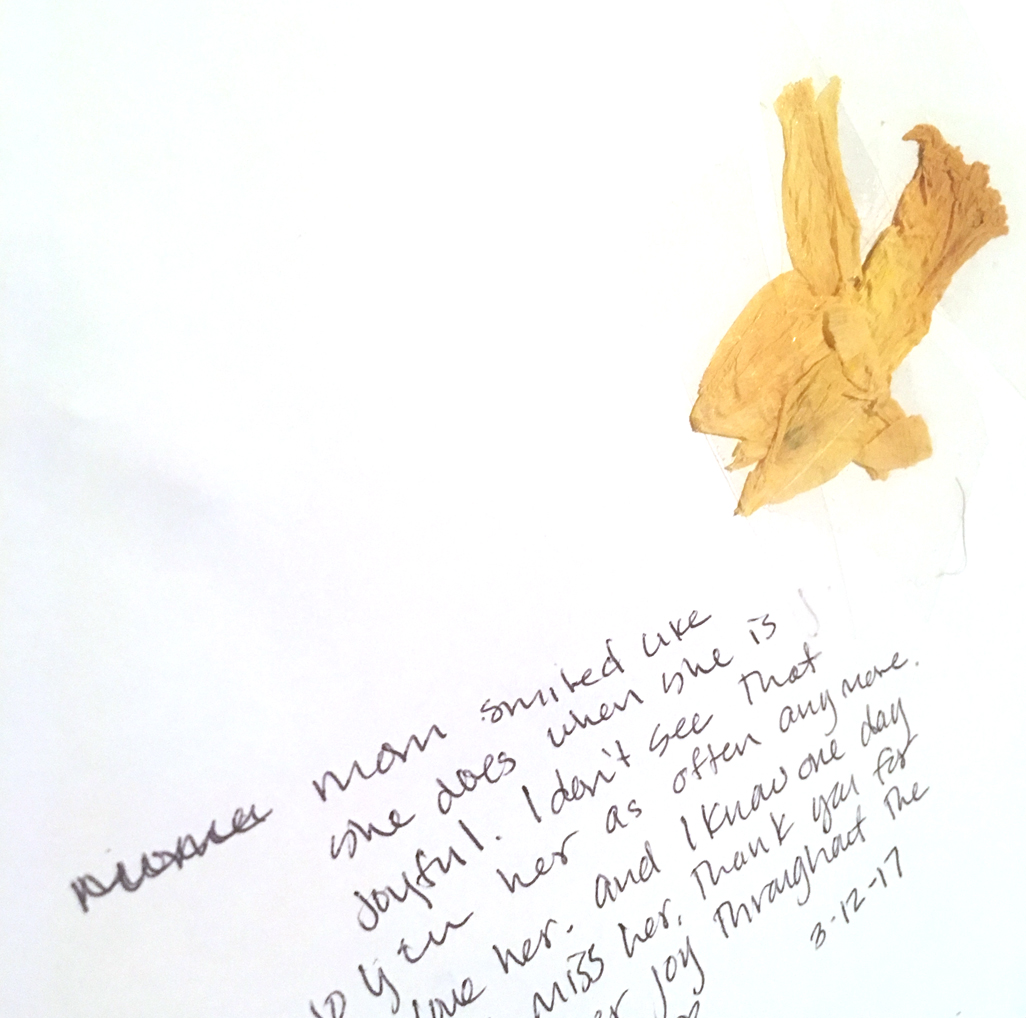 mom smiled like
she does when she is
joyful. I don't see that
in her as often anymore.
love her. and I know one day
miss her. Thank you for
joy throughout the
3-12-17